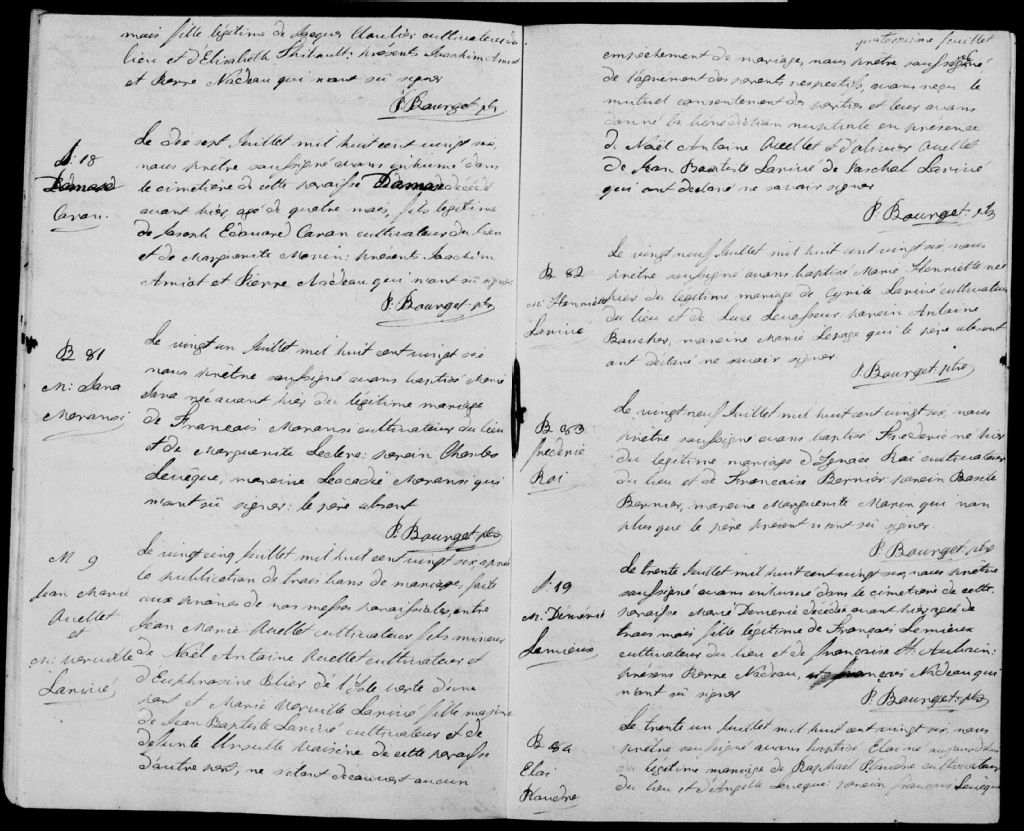 mais fille légitime de Jacques Cloutier cultivateur du
lieu et d'Elisabeth Thibault: présents Joachim Amiot
et Pierre Nadeau qui n'ont sû signer
P. Bourget ptre
S. 18
Damase
Caron.
Le dix sept Juillet mil huit cent vingt six,
nous prêtre soussigné avons inhumé dans
le cimetière de cette paroisse Damase décédé
avant hier, agé de quatre mois, fils légitime
de Joseph Edouard Caron cultivateur du lieu
et de Marguerite Morin: présents Joachim
Amiot et Pierre Nadeau qui n'ont sû signer
P. Bourget ptre
B 81
M: Sara
Moransi
Le vingt un Juillet mil huit cent vingt six
nous prêtre soussigné avons baptisé Marie
Sara née avant hier du légitime mariage
de François Moransi cultivateur du lieu
et de Marguerite Leclerc: parain Charles
Levêque, maraine Leocadie Moransi qui
n'ont sû signer: le père absent
P. Bourget ptre
M 9
Jean Marie
Ouellet
et
M: Verville
Larivé
Le vingt cinq Juillet mil huit cent vingt six, après
la publication de trois bans de mariage, faite
aux prônes de nos messes paroissiales, entre
Jean Marie Ouellet cultivateur fils mineur
de Noël Antoine Ouellet cultivateur et
d'Euphrosine Blier de l'Isle verte d'une
part et Marie Verville Larivé fille majeure
de Jean Baptiste Larivé cultivateur et de
defunte Ursulle Voisine de cette paroisse
d'autre part, ne s'étant découvert aucun
quatorzième feuillet
empêchement de mariage, nous prêtre soussigné
de l'agrément des parents respectifs, avons reçu le
mutuel consentement des parties et leur avons
donné la bénédiction nuptiale en présence
de Noël Antoine Ouellet et d'olivier Ouellet
de Jean Baptiste Larivé de Paschal Larivé
qui ont déclaré ne savoir signer
P. Bourget ptre
B 82
M: Henriette
Larivé
Le vingt neuf Juillet mil huit cent vingt six, nous
prêtre soussigné avons baptisé Marie Henriette née
hier du légitime mariage de Cyrile Larivé cultivateur
du lieu et de Luce Levasseur, parain Antoine
Boucher, maraine Marie Lepage qui le père absent
ont déclaré ne savoir signer
P. Bourget ptre
B 83
Frédéric
Roi
Le vingt neuf Juillet mil huit cent vingt six, nous
prêtre soussigné avons baptisé Frédéric né hier
du légitime mariage d'Ignace Roi cultivateur
du lieu et de Françoise Bernier: parain Basile
Bernier, maraine Marguerite Morin qui non
plus que le père présent n'ont sû signer.
P. Bourget ptre
S. 19
M: Démérise
Lemieux
Le trente Juillet mil huit cent vingt six, nous prêtre
soussigné avons inhumé dans le cimetière de cette
paroisse Marie décédée avant hier agée de
trois mois fille légitime de François Lemieux
cultivateur du lieu et de françoise St. Aubain:
présens Pierre Nadeau, françois Nadeau qui
n'ont sû signer
P. Bourget ptre
B 84
Eloi
Plourdre
Le trente un Juillet mil huit cent vingt six, nous
prêtre soussigné avons baptisé Eloi né aujourd'hui
légitime mariage de Raphael Plourdre cultivateur
du lieu et d'Angelle Levêque: parain françois Levêque